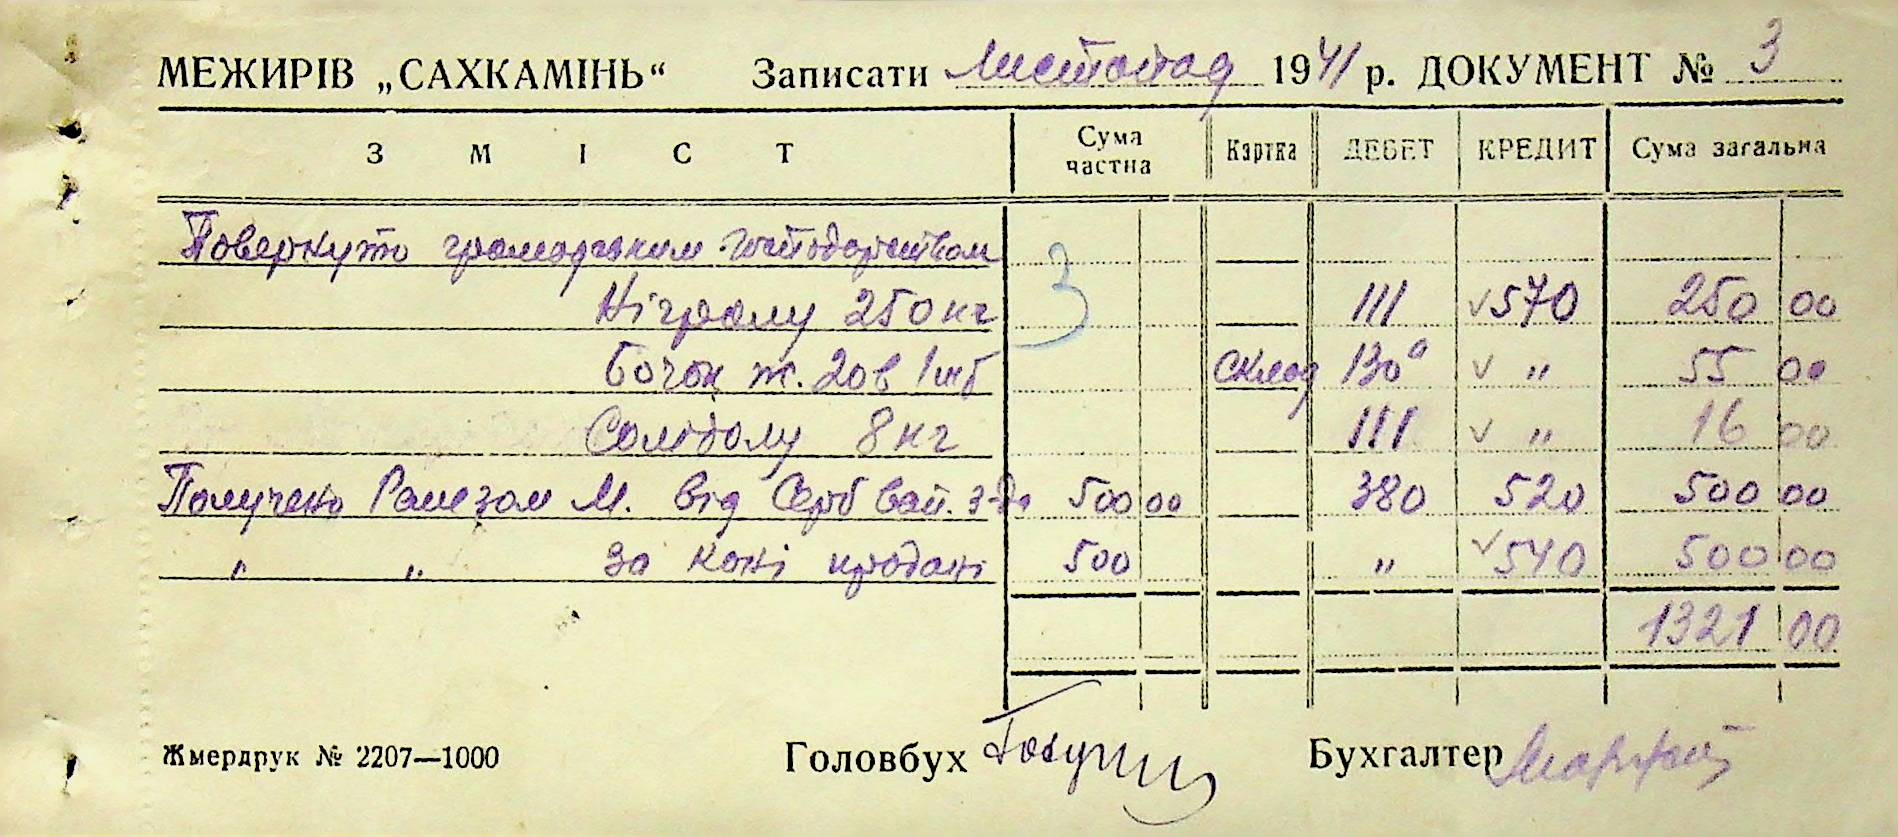 МЕЖИРІВ „САХКАМІНЬ“ Записати листопад 1941 р. ДОКУМЕНТ № 3
ЗМІСТ Сума частна Картка ДЕБЕТ КРЕДИТ Сума загальна
Повернуто громадським господарством 3
Нігролу 250 кг 111 √ 570 250 00
бочок ж. 20в 1шт склад 130а √ „ 55 00
Солідолу 8 кг 111 √ „ 16 00
Получено Рамзом М. від 500 00 380 520 500 00
„ „ за коні продані 500 „ √ 540 500 00
1321 00
Жмердрук № 2207—1000 Головбух Бухгалтер